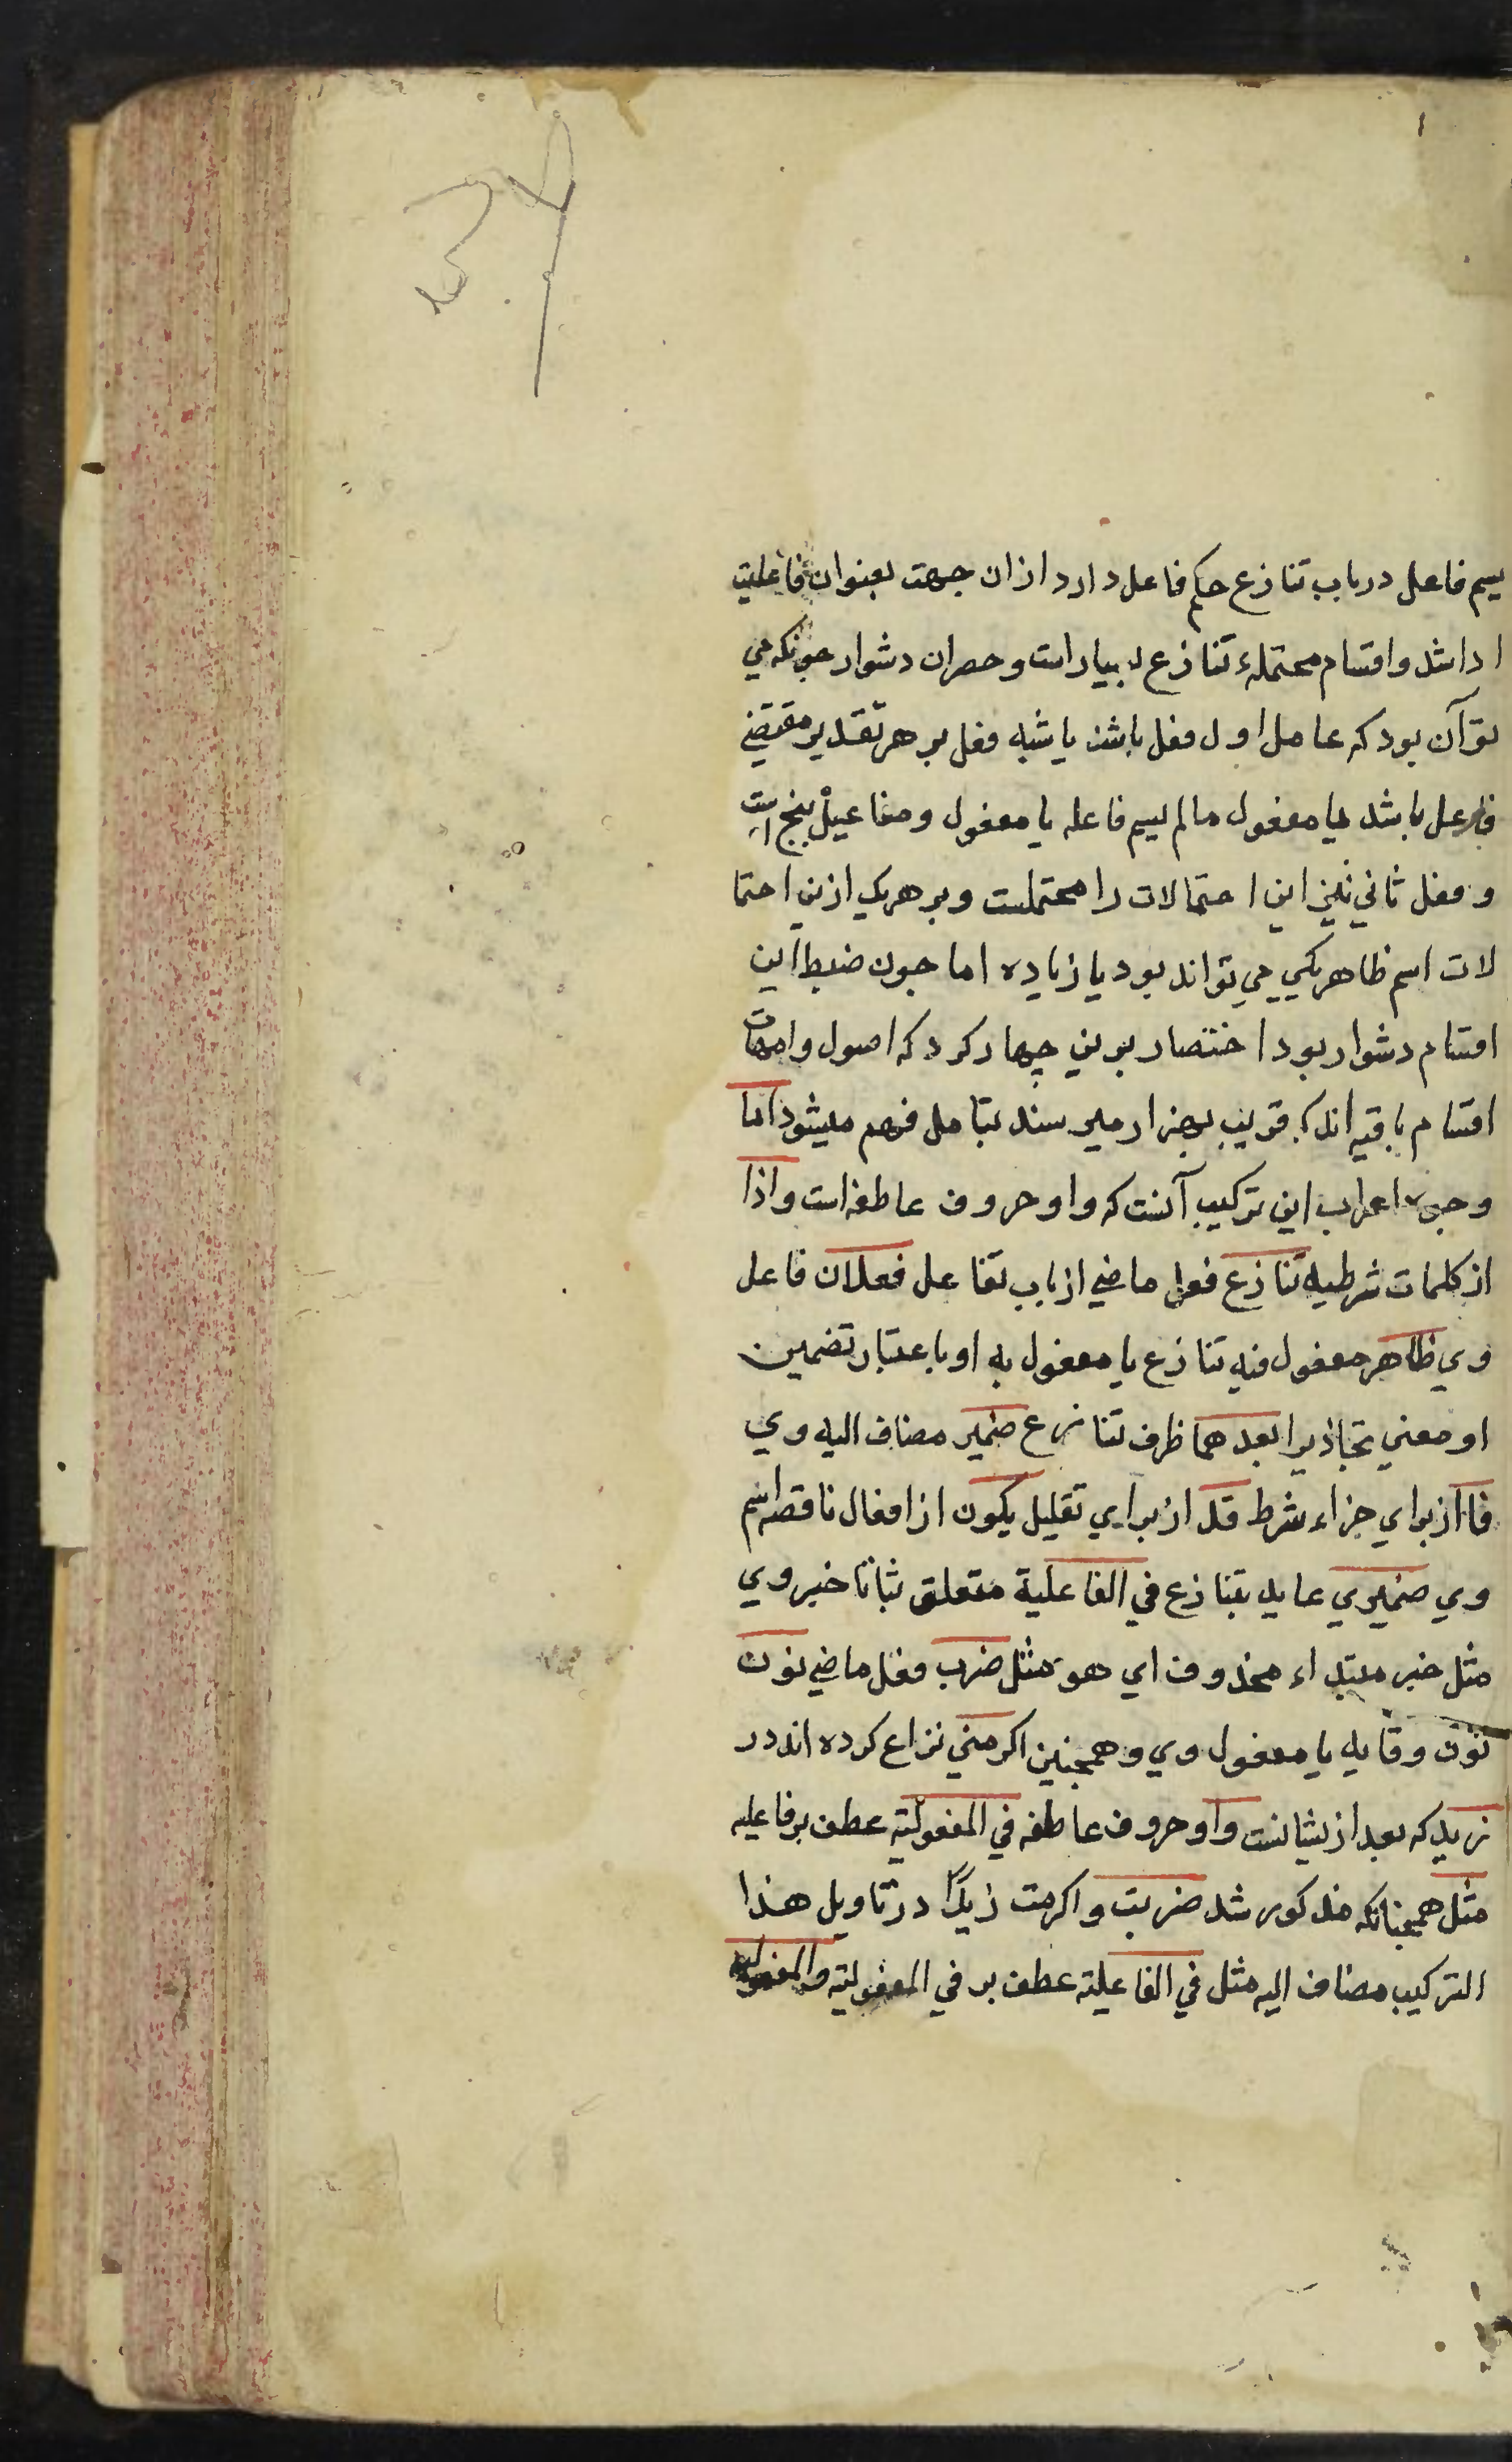 یسم فاعل در باب تنازع حکم فاعل دارد ازان جهت بعنوان فاعلیت
ادا شد و اقسام محتملهٔ تنازع بسیار است و حصران دشوار چونکه می
تو آن بود که عامل اول فعل باشد یا شبه فعل بر هر تقدیر مقتضی
فاعل باشد یا مفعول مالم یسم فاعله یا مفعول و مفاعیل پنج است
و فعل ثانی نیز این احتمالات را محتملست و بر هریک ازین احتما
لات اسم ظاهر یکی می تواند بود یا زیاده اما چون ضبط این
اقسام دشوار بود اختصار برین چهار کرد که اصول و امهات
اقسام باقیه اند که قریب بهزار میرسند بتامل فهم میشود اما
وجوه اعراب این ترکیب آنست که واو حروف عاطفه است واذا
از کلمات شرطیه تنازع فعل ماضی از باب تفاعل فعلان فاعل
وی ظاهر مفعول فیه تنازع یا مفعول به او باعتبار تضمین
او معنی تجاذبرا بعدهما ظرف تنازع ضمیر مضاف الیه وی
فا از برای جزاء شرط قد از برای تقلیل یکون از افعال ناقصه اسم
وی ضمیری عاید بتنازع فی الفاعلیة متعلق بثابتا خبر وی
مثل خبر مبتداء محذوف ای هو مثل ضرب فعل ماضی نون
نون وقایه یا مفعول وی و همچنین اکرمنی نزاع کرده اند در
زید که بعد از یشانست واو حروف عاطفه فی المفعولیة عطف بر فاعلیه
مثل همچنانکه مذکور شد ضربت واکرمت زیدًا در تاویل هذا
الترکیب مضاف الیه مثل فی الفاعلیة عطف بر فی المفعولیة والمفعولیه